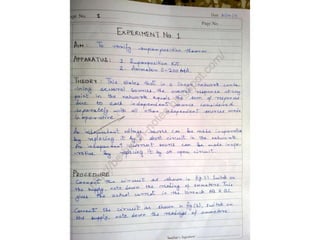 Expt. No. 1
Date
Page No.
EXPERIMENT No. 1
AIM: To verify superposition theorem
APPARATUS: 1. Superposition Kit
2. Ammeters 0-200 mA
THEORY: This states that in a linear network conta-
ining several sources the overall response at any
point in the network equals the sum of response
due to each independent source considered
separately with all other independent sources made
inoperative
An independent voltage source can be made inoperative
by replacing it by a short circuit in the network
An independent current source can be made inope-
rative by replacing it by an open circuit
PROCEDURE
Connect the circuit as shown in fig (1) switch on
the supply, note down the reading of ammeters. This
gives the actual current in the branch
Connect the circuit as shown in fig (2), switch on
the supply, note down the readings of ammeters
Teacher's Signature